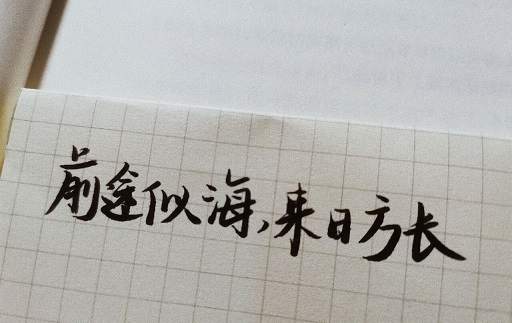 前途似海，来日方长